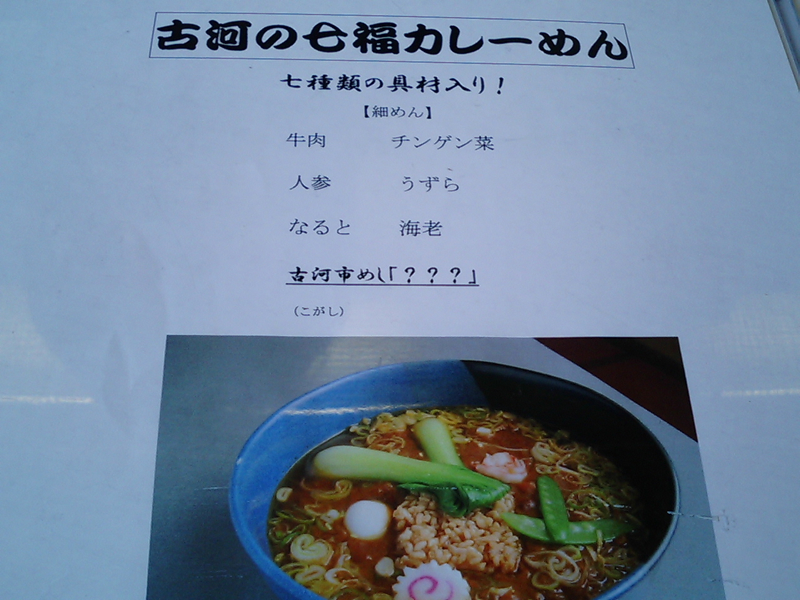 古河の七福カレーめん
七種類の具材入り!
【細めん】
牛肉 チンゲン菜
人参 うずら
なると 海老
古河市めし「???」
(こがし)